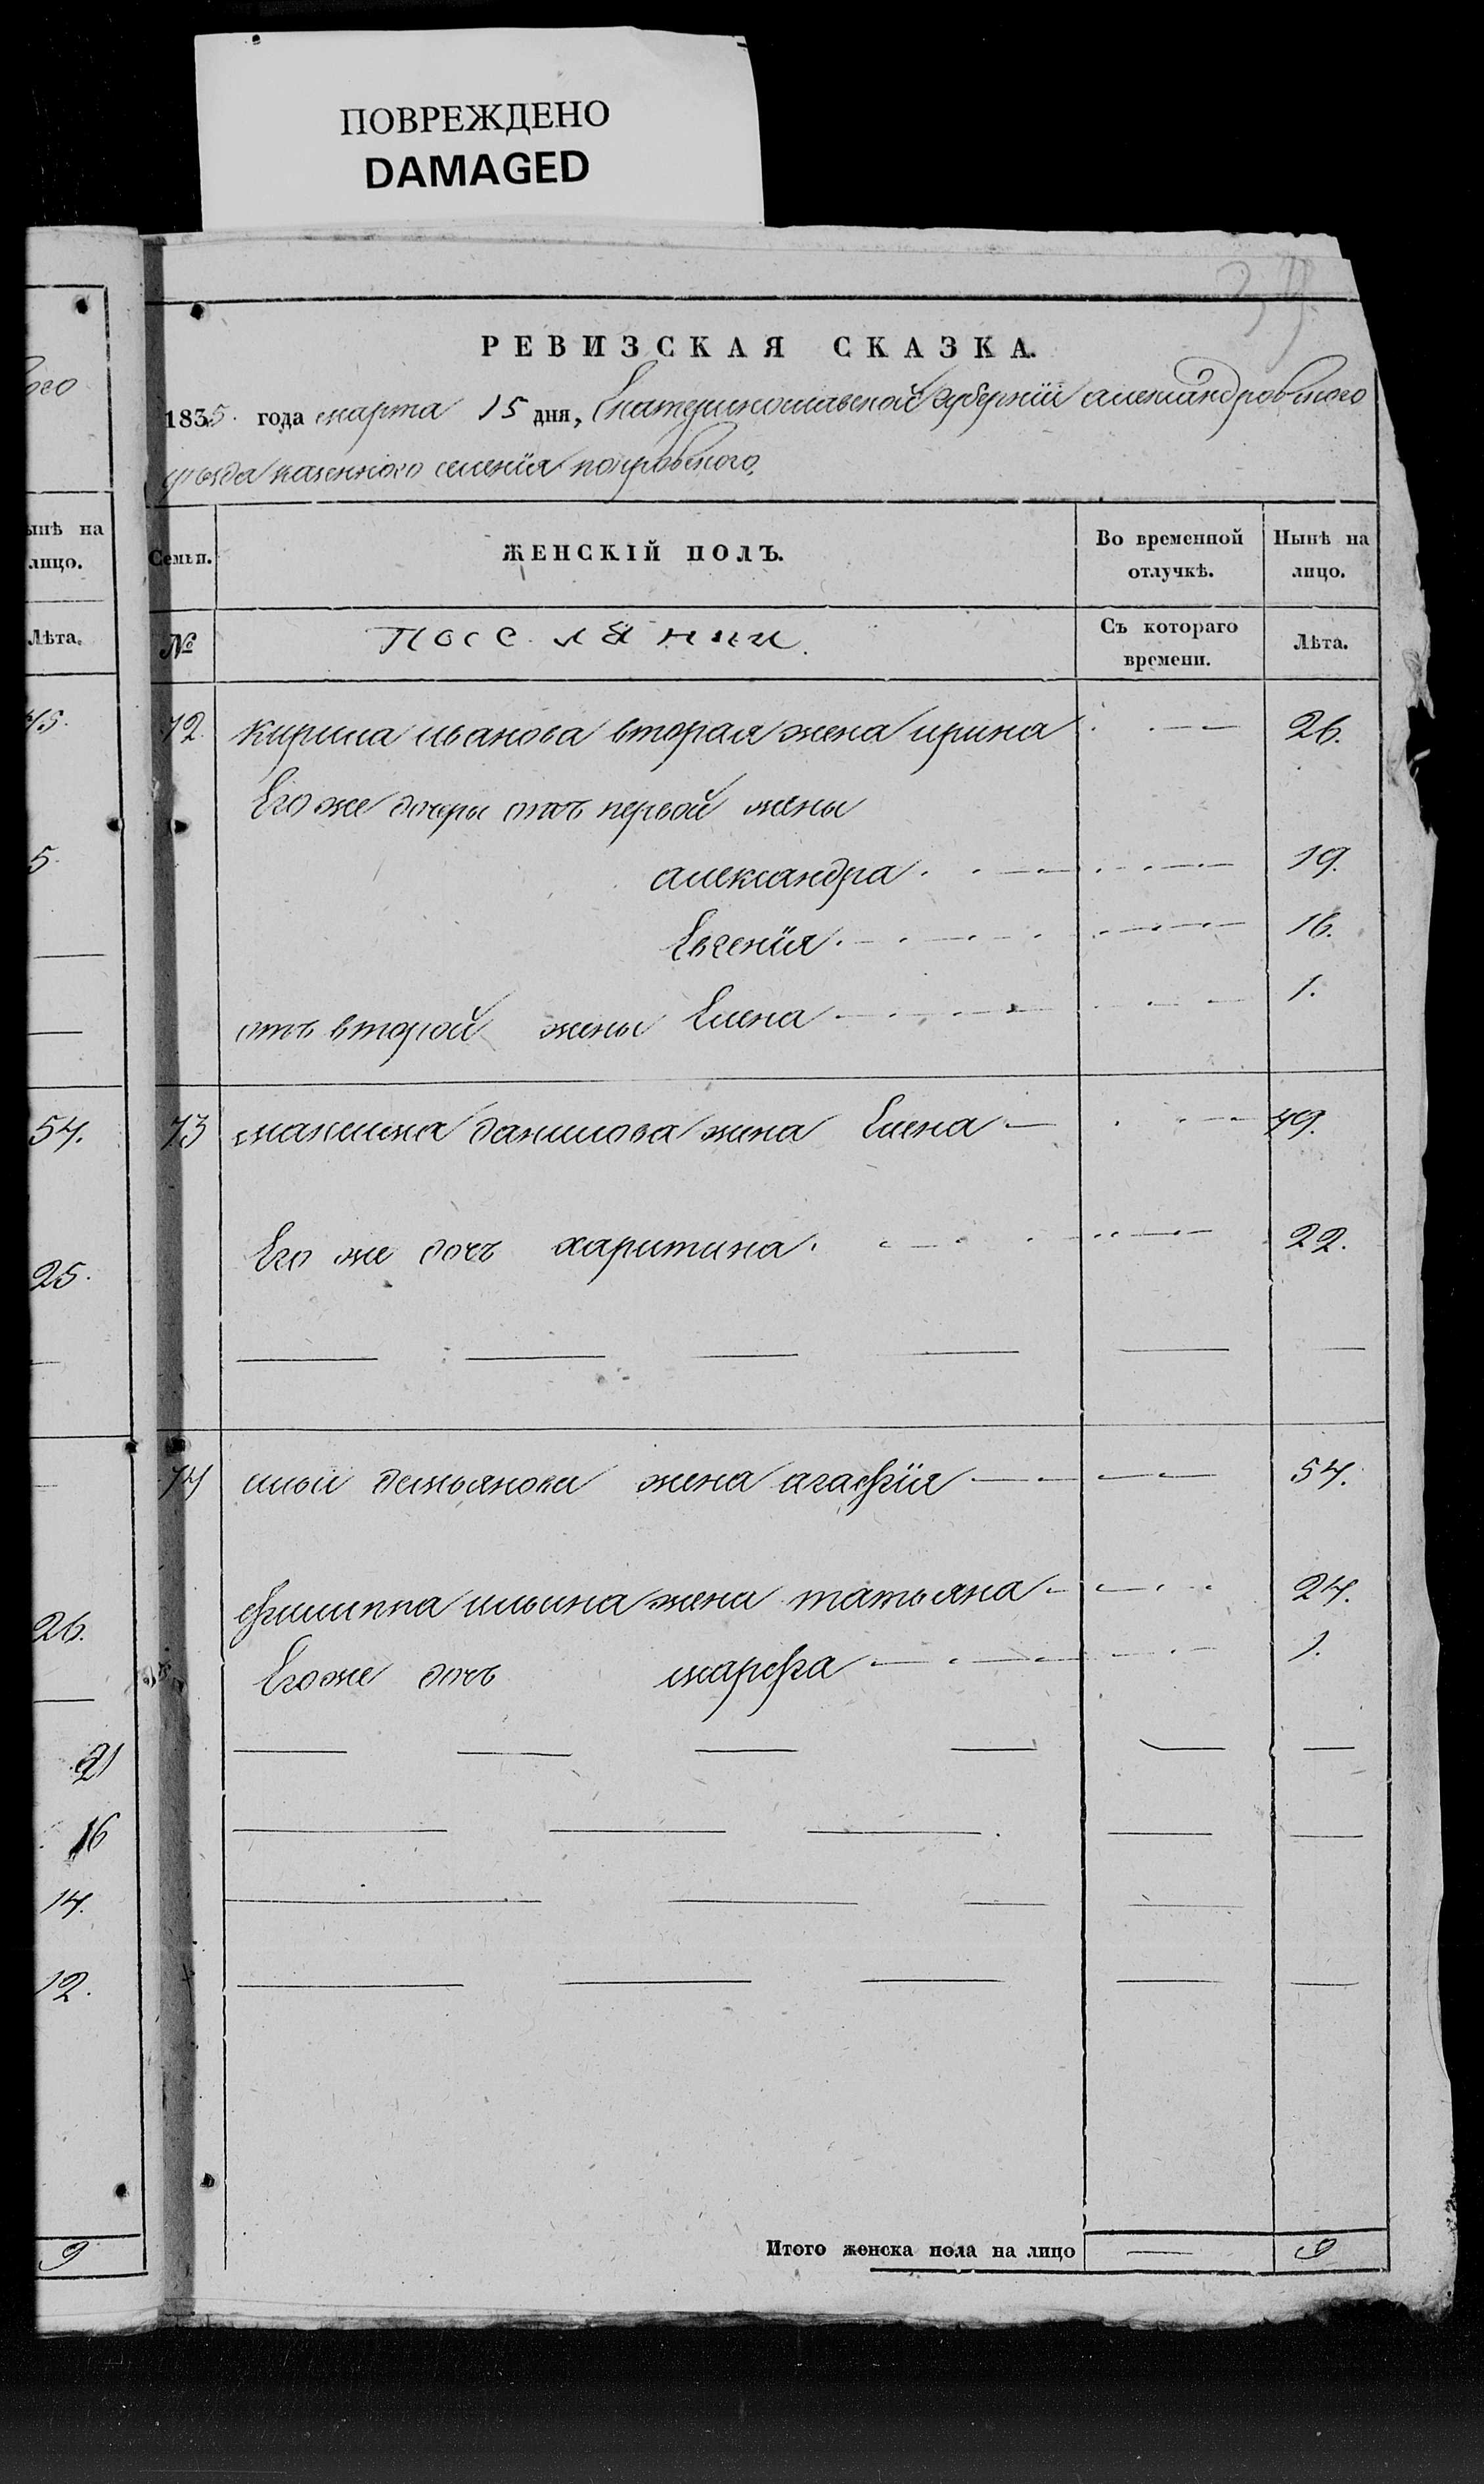 ПОВРЕЖДЕНО
DAMAGED
39.
РЕВИЗСКАЯ СКАЗКА.
1835. года марта 15 дня, Екатеринославской губернiи александровского
уезда казенного селенiя покровского.
Семьи. ЖЕНСКIЙ ПОЛЪ. Во временной отлучкѣ. Нынѣ на лицо.
№ поселяния. Съ котораго времени. Лѣта.
72. кирила иванова вторая жена ирина 26.
Его же дочери отъ первой жены
александра 19.
Евгенiя 16.
отъ второй жены Елена 1.
73 максима данилова жена Елена 49.
Его же дочь харитина 22.
74 ильи демьянова жена агафiя 54.
филиппа ильина жена татьяна 24.
Его же дочь марфа 1.
Итого женска пола на лицо — 9
ого
ынѣ на
лицо.
Лѣта.
45.
5.
54.
25.
26.
21
16
14.
12.
9